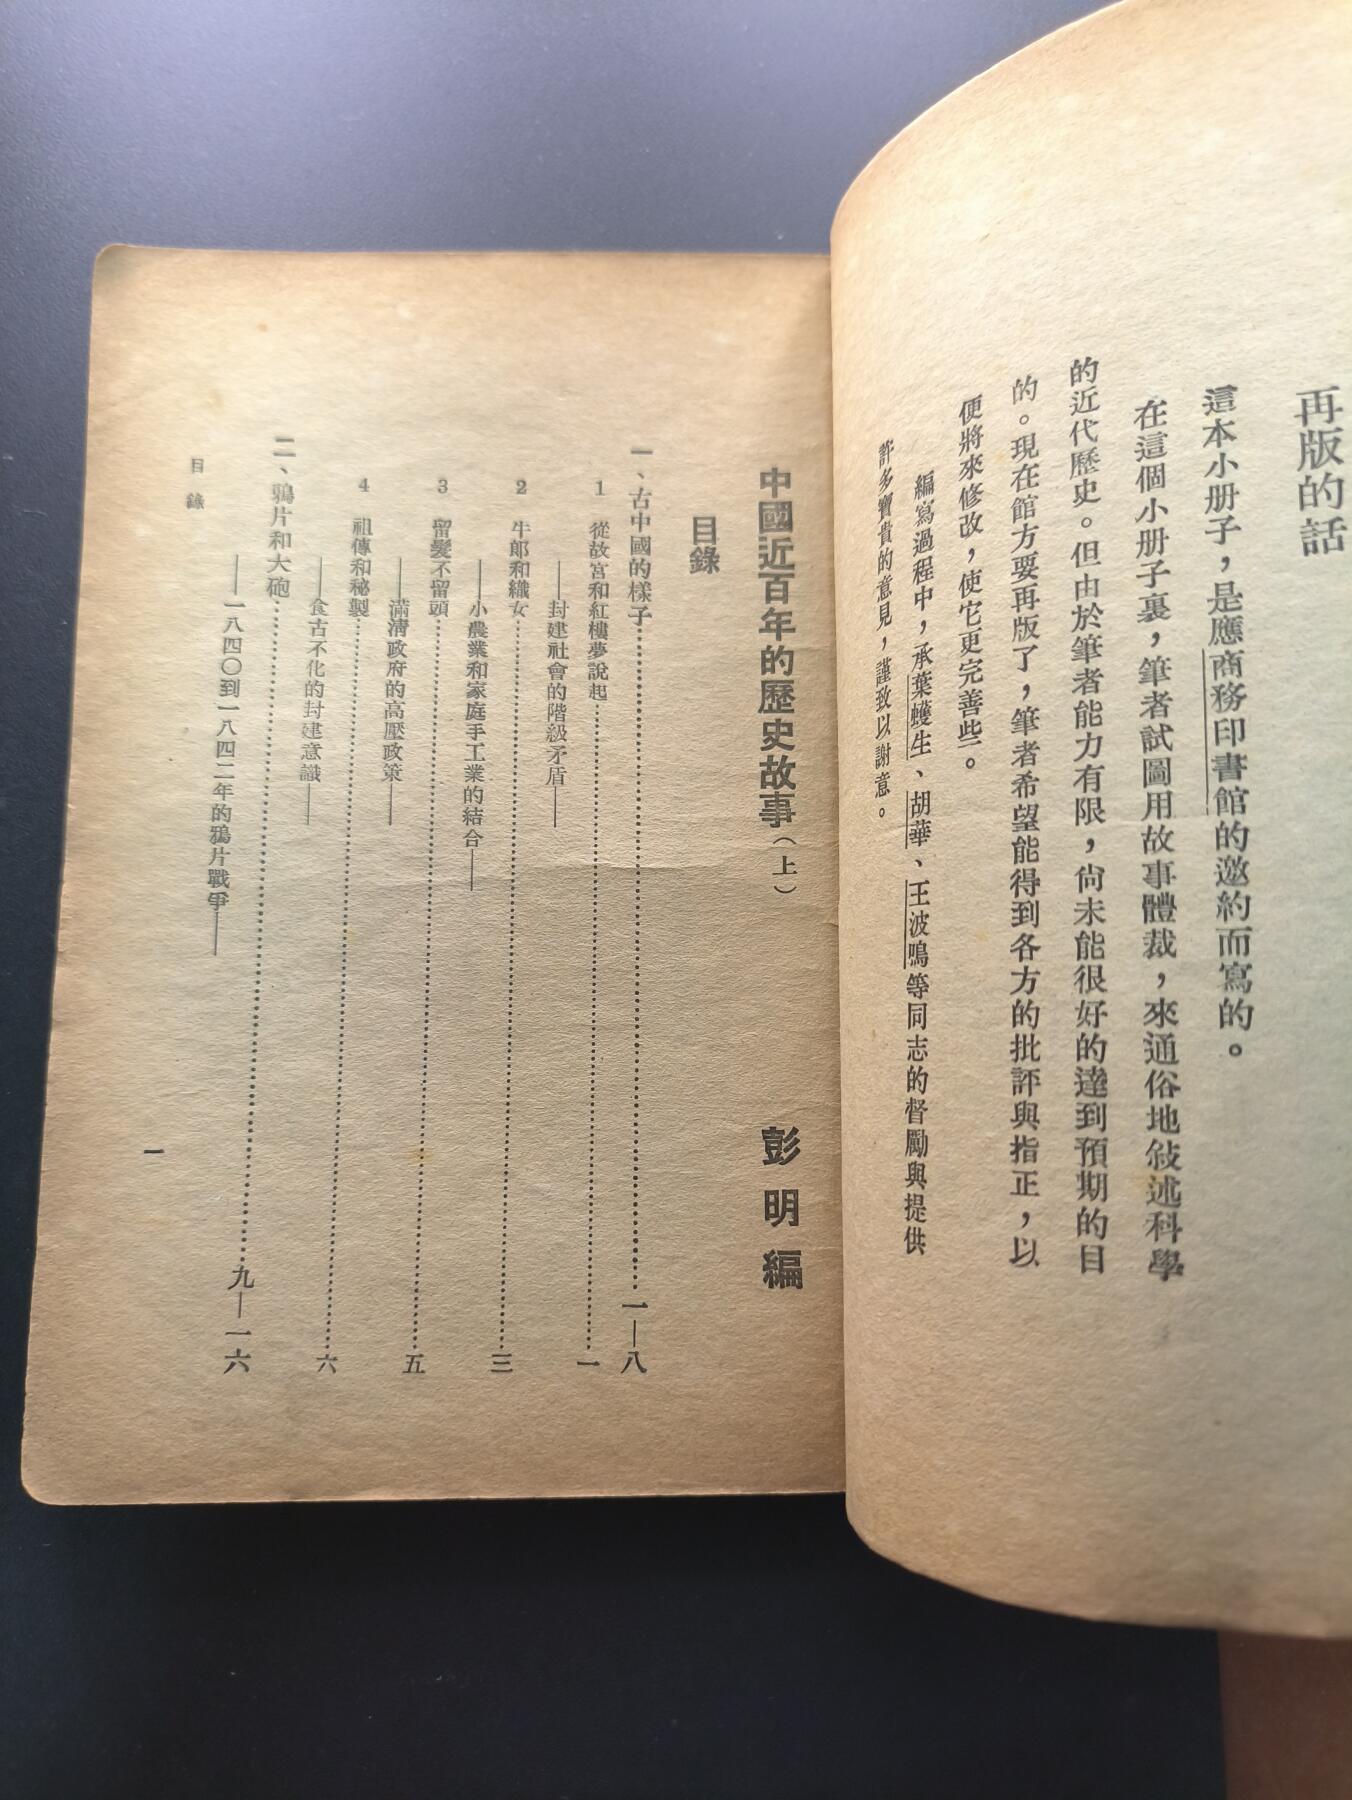 再版的話
這本小册子，是應商務印書館的邀約而寫的。
在這個小册子裏，筆者試圖用故事體裁，來通俗地敍述科學
的近代歷史。但由於筆者能力有限，尙未能很好的達到預期的目
的。現在館方要再版了，筆者希望能得到各方的批評與指正，以
便將來修改，使它更完善些。
編寫過程中，承葉蠖生、胡華、王波鳴等同志的督勵與提供
許多寶貴的意見，謹致以謝意。
中國近百年的歷史故事（上）　彭明編
目錄
一、古中國的樣子…………一—八
1 從故宮和紅樓夢說起…………一
——封建社會的階級矛盾——
2 牛郎和織女…………三
——小農業和家庭手工業的結合——
3 留髮不留頭…………五
——滿淸政府的高壓政策——
4 祖傳和秘製…………六
——食古不化的封建意識——
二、鴉片和大砲…………九—一六
——一八四〇到一八四二年的鴉片戰爭——
目錄
一